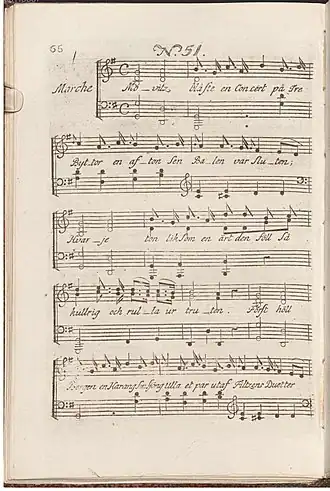 66
N.º 51.
Marche Mo_vitz, blåste en Concert på Tre
Byttor en af_ton sen Ba_len var slu_ten;
Hvar_je ton lik som en ärt den föll så
kullrig och rul_la ur tru_ten. Först höll
Bergen en Harang
et par utaf Filtzens Duetter